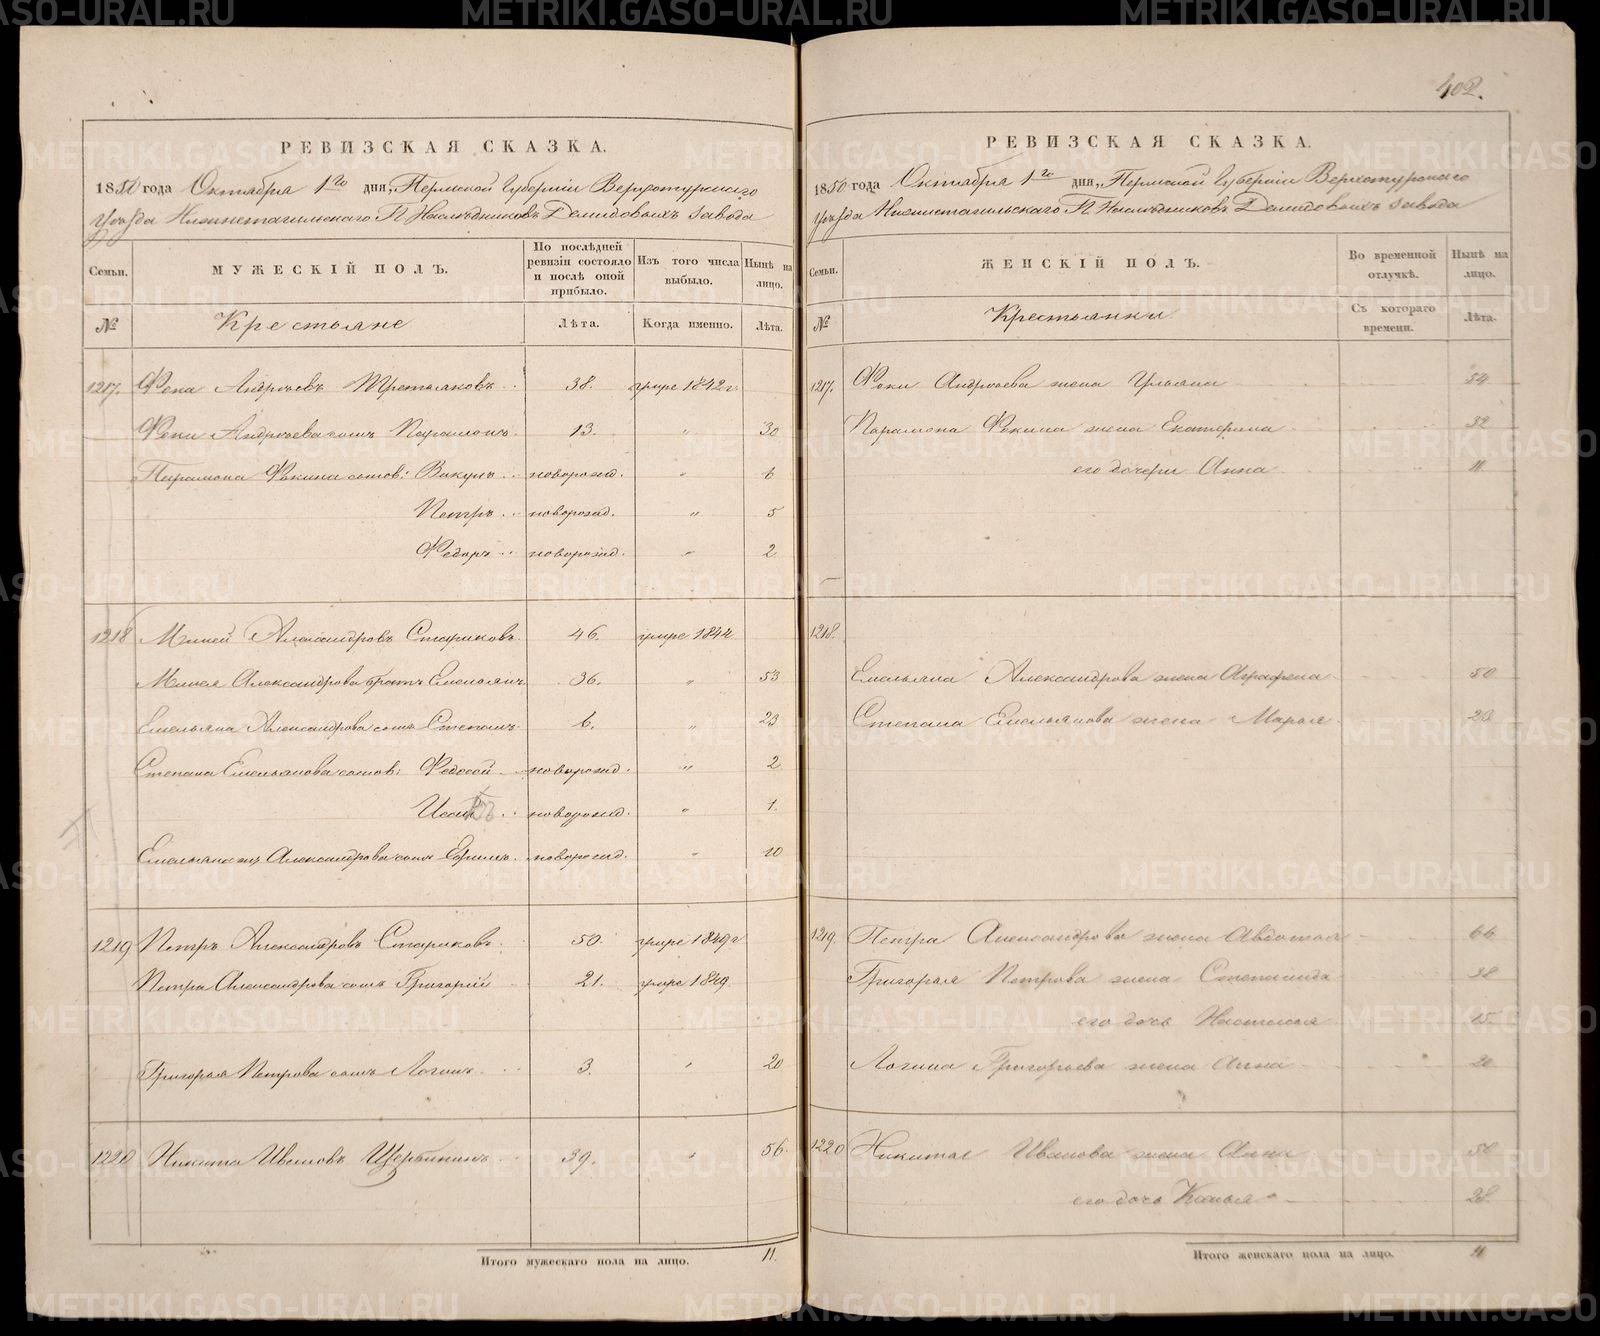 402.
РЕВИЗСКАЯ СКАЗКА.
1850 года Октября 1го дня, Пермской Губернiи Верхотурскаго
уѣзда Нижнетагильскаго Г.г. Наслѣдниковъ Демидовыхъ завода
Семьи.
МУЖЕСКIЙ ПОЛЪ.
По послѣдней ревизiи состояло и послѣ оной прибыло.
Изъ того числа выбыло.
Нынѣ на лицо.
№
Крестьяне
Лѣта.
Когда именно.
Лѣта.
1217. Фока Андреевъ Третьяковъ 38. умре 1842 г.
Фоки Андреева сынъ Парамонъ 13. " 30
Парамона Фокина сынов: Вакулъ новорожд. " 6
Петръ новорожд. " 5
Федоръ новорожд. " 2
1218 Александровъ Стариковъ 46. умре 1844
Александрова братъ Емельянъ 36. " 53
Емельяна Александрова сынъ Степанъ 6. " 23
Степана Емельянова сынов: Федосей новорожд. " 2
новорожд. " 1.
Александрова сынъ Ефимъ новорожд. " 10
1219 Петръ Александровъ Стариковъ 50. умре 1849 г
Петра Александрова сынъ Григорiй 21. умре 1849.
Григорья Петрова сынъ Логинъ 3. " 20
1220 Никита Ивановъ Щербининъ 39. " 56.
Итого мужескаго пола на лицо. 11.
РЕВИЗСКАЯ СКАЗКА.
1850 года Октября 1го дня, Пермской Губернiи Верхотурскаго
уѣзда Нижнетагильскаго Г.г. Наслѣдниковъ Демидовыхъ завода
Семьи.
ЖЕНСКIЙ ПОЛЪ.
Во временной отлучкѣ.
Нынѣ на лицо.
№
Крестьянки
Съ котораго времени.
Лѣта.
1217. Фоки Андреева жена Ульяна 54
Парамона Фокина жена Екатерина 32
его дочери Анна 11
1218.
Емельяна Александрова жена Аграфена 50
Степана Емельянова жена Марья 23
1219. Петра Александрова жена Авдотья 66
Григорья Петрова жена Степанида 38
его дочь Настасья 15
Логина Григорьева жена Анна 20
1220 Никиты Иванова жена Анна 50
его дочь 28.
Итого женскаго пола на лицо. 11
METRIKI.GASO-URAL.RU